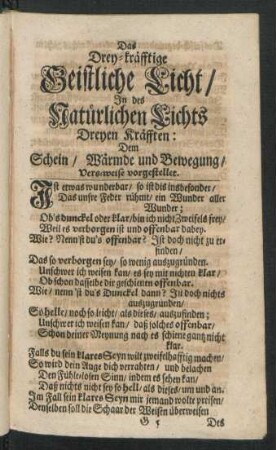 Das
Drey-kräfftige
Geistliche Licht/
In des
Natürlichen Lichts
Dreyen Kräfften:
Dem
Schein/ Wärmde und Bewegung/
Versweise vorgestellet.
Ist etwas wunderbar/ so ist dis insbesonder/
Das unsre Feder rühmt/ ein Wunder aller
Wunder;
Ob's dunckel oder klar/ bin ich nicht Zweifels frey/
Weil es verborgen ist und offenbar dabey.
Wie? Nenn'st du's offenbar? Ist doch nicht zu er-
finden/
Das so verborgen sey/ so wenig auszugründen.
Unschwer ich weisen kan/ es sey mit nichten klar/
Ob schon dasselbe dir geschienen offenbar.
Wie/ nenn'st du's Dunckel dann? Ist doch nichts
auszugründen/
So helle/ noch so leicht/ als dieses/ auszufinden;
Unschwer ich weisen kan/ daß solches offenbar/
Schon deiner Meynung nach es schiene gantz nicht
klar.
Falls du sein klares Seyn wilt zweifelhafftig machen/
So wird dein Auge dich verrahten/ und belachen
Den Fühl-losen Sinn/ indem es sehen kan/
Daß nichts nicht sey so hell/ als dieses/ um und an.
Im Fall sein klares Seyn mir jemand wolte preisen/
Denselben soll die Schaar der Weisen überweisen
G 5 Des